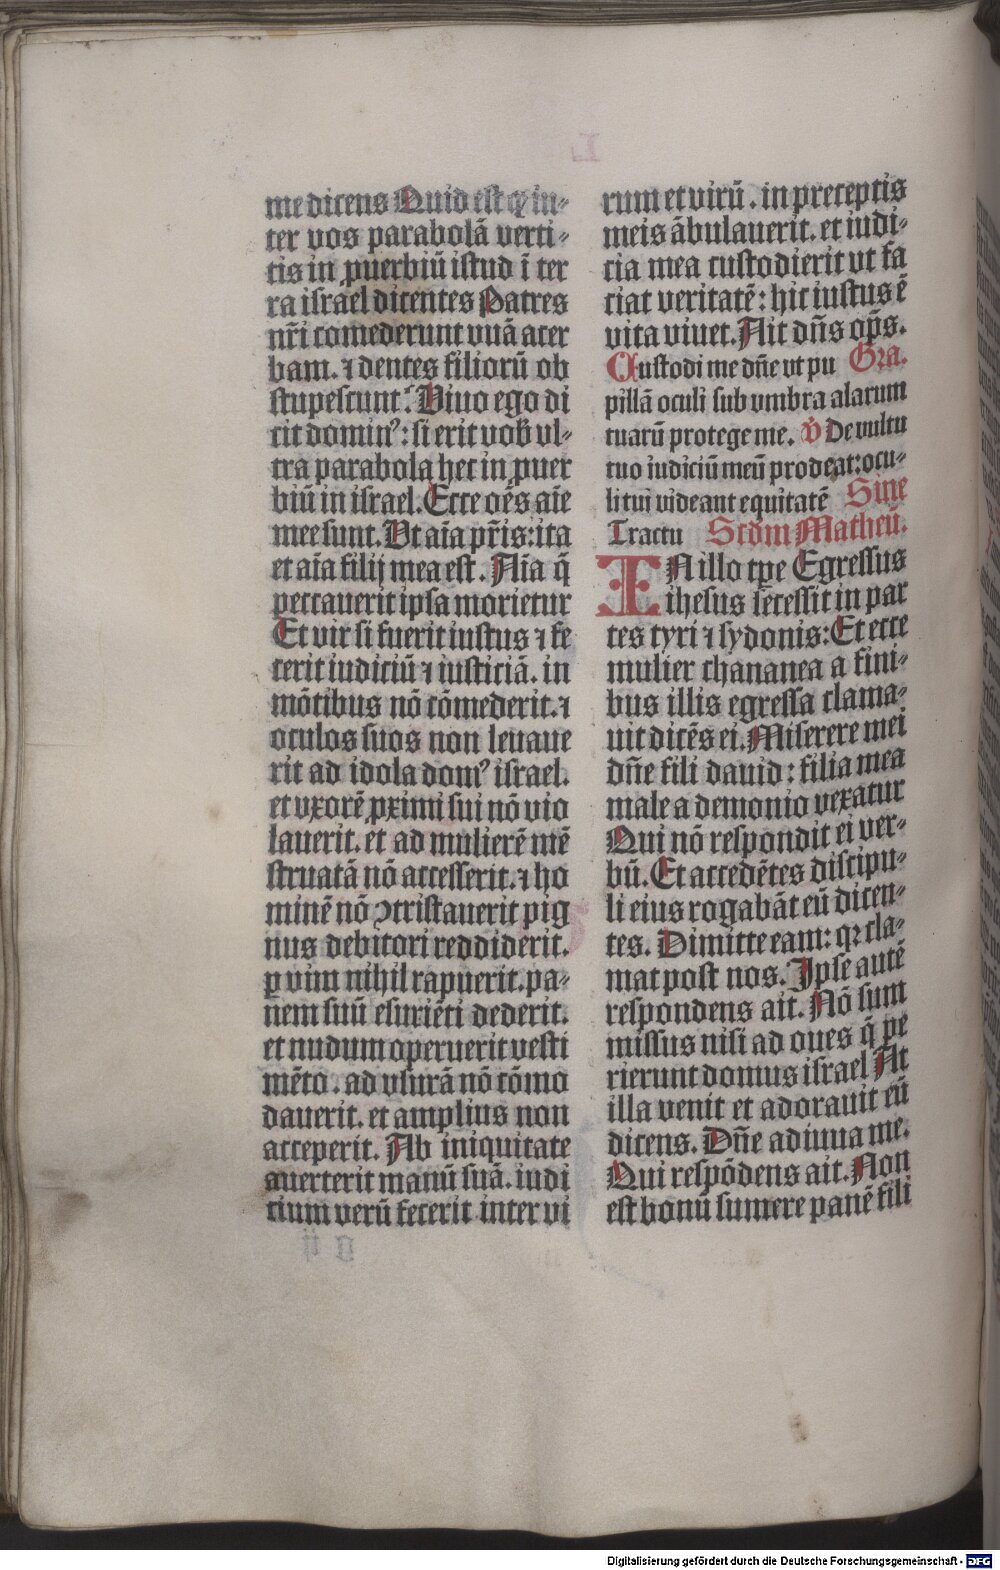 me dicens Quid est ꝙ in-
ter vos parabolā verti-
tis in ꝓuerbiū istud ī ter
ra israel dicentes Patres
nr̄i comederunt vuā acer
bam. ⁊ dentes filiorū ob
stupescunt. Viuo ego di
cit dominꝰ: si erit vob̄ vl-
tra parabola hec in ꝓuer
biū in israel. Ecce oēs aīe
mee sunt. Vt aīa pr̄is: ita
et aīa filij mea est. Aīa q̄
peccauerit ipsa morietur
Et vir si fuerit iustus ⁊ fe
cerit iudiciū ⁊ iusticiā. in
mōtibus nō cōmederit. ⁊
oculos suos non leuaue
rit ad idola domꝰ israel.
et vxorē ꝓximi sui nō vio
lauerit. et ad mulierē mē
struatā nō accesserit. ⁊ ho
minē nō ꝯtristauerit pig
nus debitori reddiderit.
ꝑ vim nihil rapuerit. pa-
nem suū esuriēti dederit.
et nudum operuerit vesti
mēto. ad vsurā nō cōmo
dauerit. et amplius non
acceperit. Ab iniquitate
auerterit manū suā. iudi
cium verū fecerit inter vi
rum et virū. in preceptis
meis ābulauerit. et iudi-
cia mea custodierit vt fa
ciat veritatē: hic iustus ē
vita viuet. Ait dn̄s op̄s.
Custodi me dn̄e vt pu Gra.
pillā oculi sub vmbra alarum
tuarū protege me. V̄ De vultu
tuo iudiciū meū prodeat: ocu-
li tui videant equitatē Sine
Tractu Scdm Matheū.
IN illo tꝑe Egressus
ihesus secessit in par
tes tyri ⁊ sydonis: Et ecce
mulier chananea a fini-
bus illis egressa clama-
uit dicēs ei. Miserere mei
dn̄e fili dauid: filia mea
male a demonio vexatur
Qui nō respondit ei ver-
bū. Et accedētes discipu-
li eius rogabāt eū dicen-
tes. Dimitte eam: qꝛ cla-
mat post nos. Ipse autē
respondens ait. Nō sum
missus nisi ad oues q̄ pe
rierunt domus israel At
illa venit et adorauit eū
dicens. Dn̄e adiuua me.
Qui respōdens ait. Non
est bonū sumere panē fili
Digitalisierung gefördert durch die Deutsche Forschungsgemeinschaft - DFG